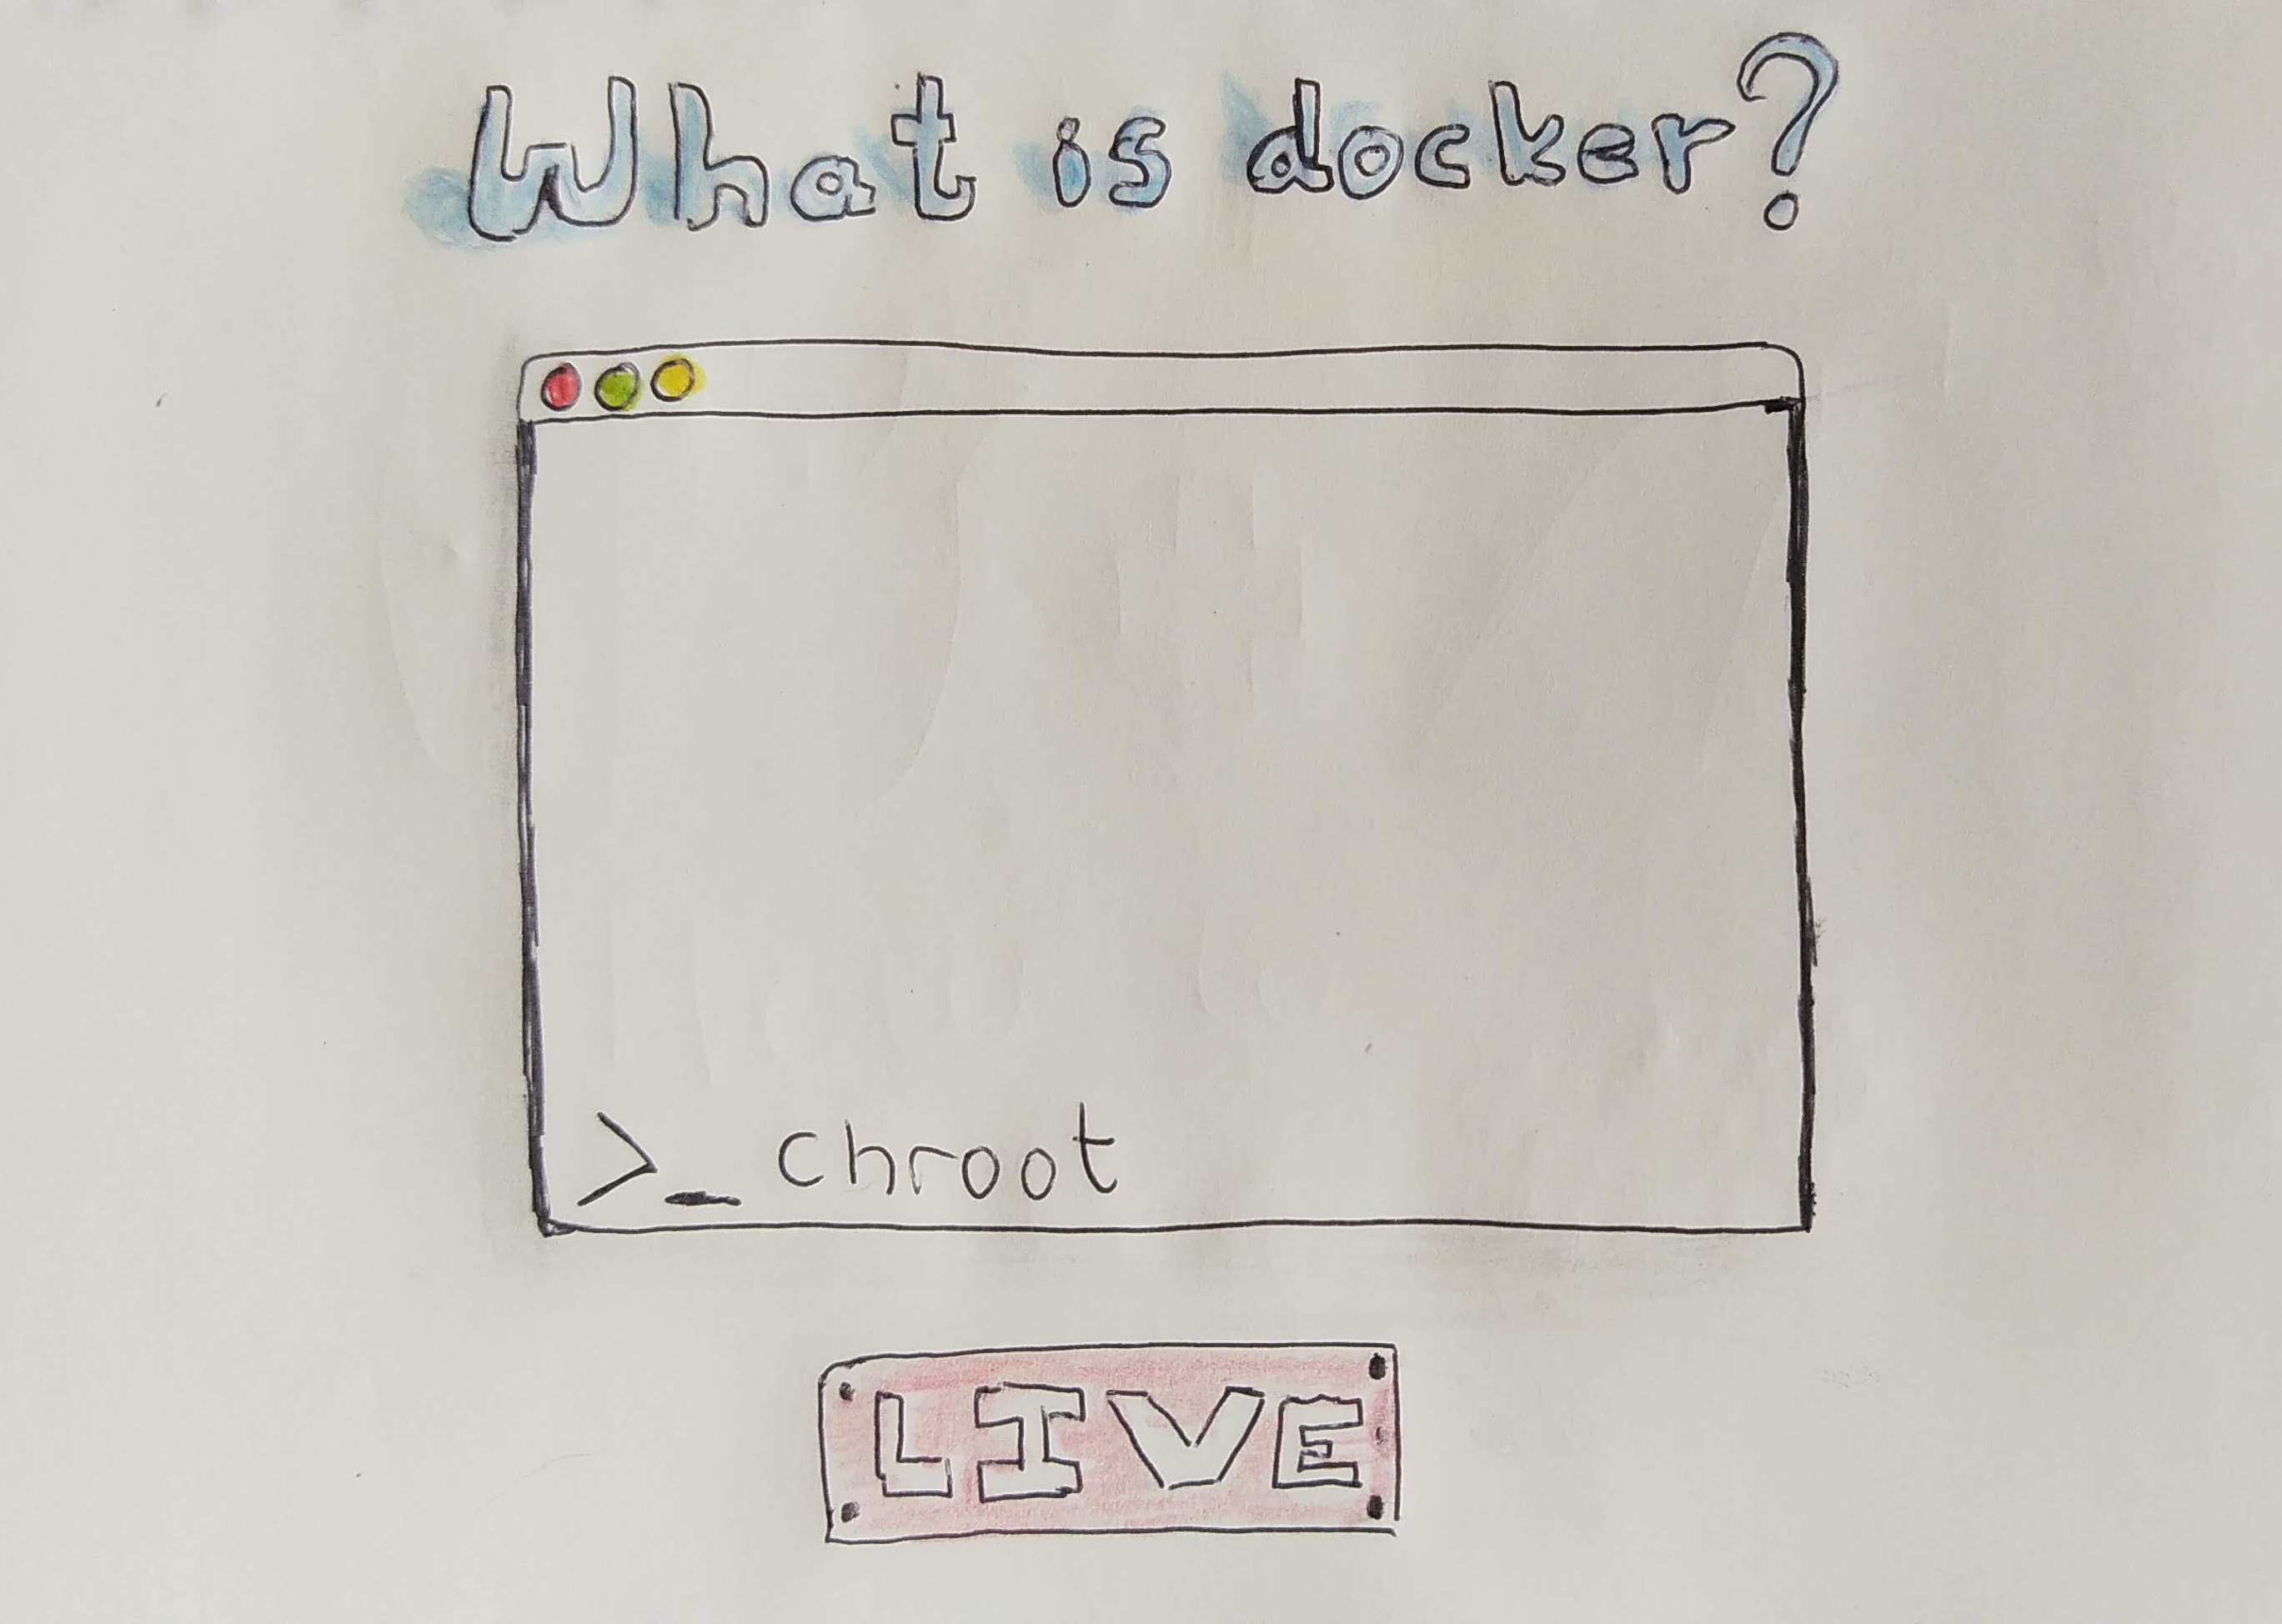 What is docker?
>_ chroot
LIVE